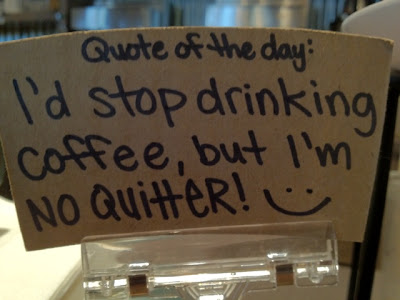 Quote of the day:
I'd stop drinking
coffee, but I'm
NO QUITTER! :)